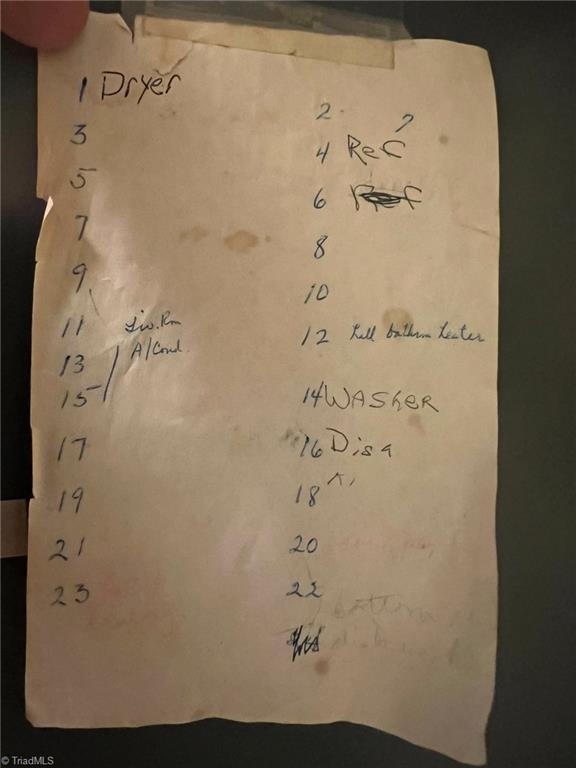 1 Dryer
2
3
4 Ref
5
6
7
8
9
10
11 Liv. Rm
12 Hall bathrm heater
13 A/Cond.
15
14 WASheR
17
16 Dis
19
18
21
20
23
22
bottom
© TriadMLS